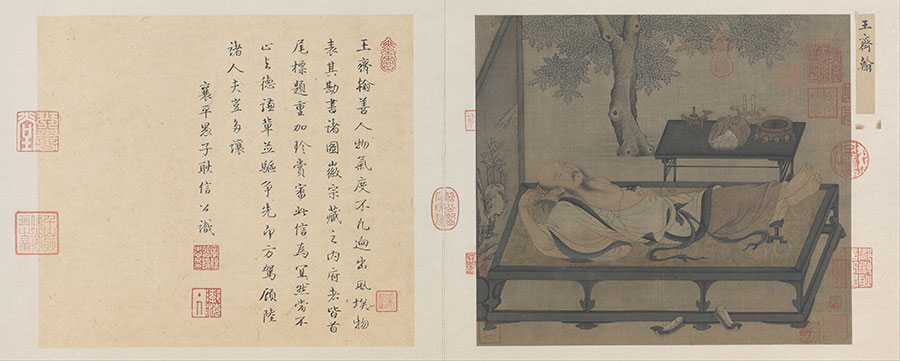 王齊翰
王齊翰善人物氣度不凡迥出風埃物
表其勘書諸圖徽宗藏之内府者皆首
尾標題重加珍賞審此信為然當不
止与德謙輩並驅爭先即方駕顧陸
諸人夫豈多讓
襄平子耿信公識